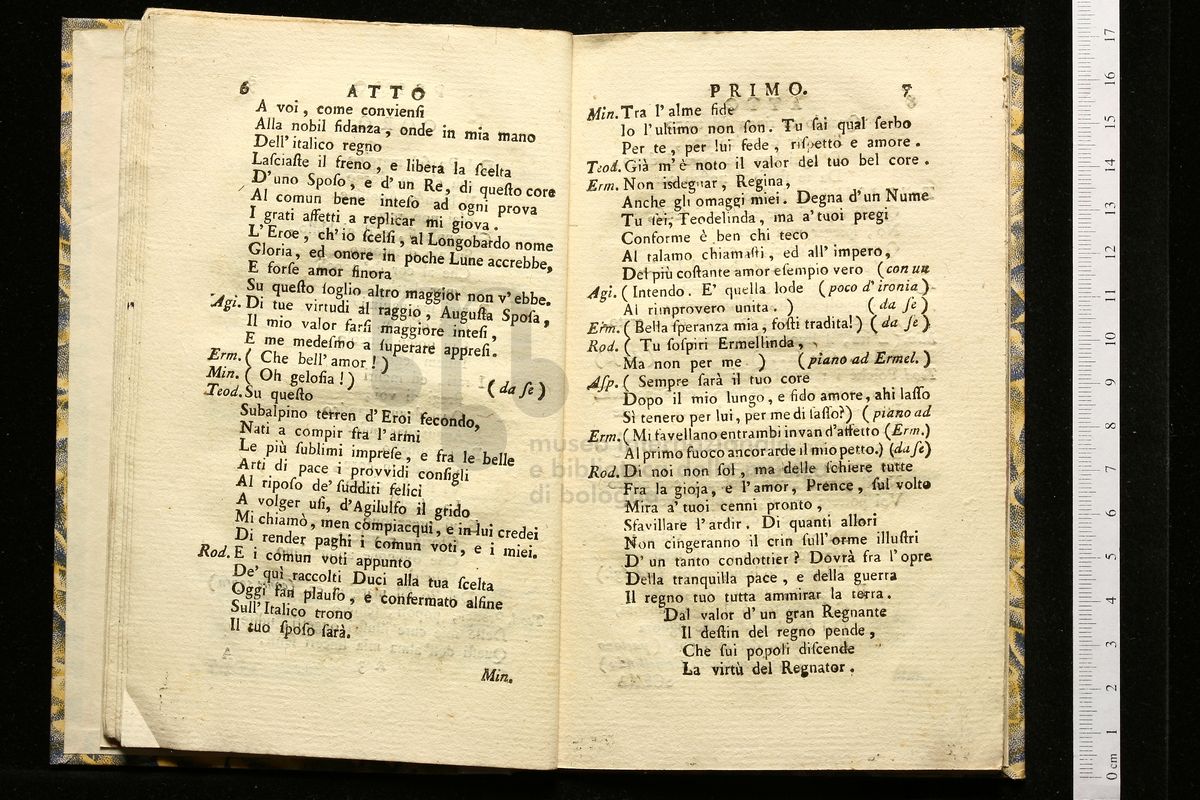 6 ATTO
A voi, come convienſi
Alla nobil fidanza, onde in mia mano
Dell' italico regno
Laſciaſte il freno, e libera la ſcelta
D'uno Spoſo, e d' un Re, di queſto core
Al comun bene inteſo ad ogni prova
I grati affetti a replicar mi giova.
L' Eroe, ch' io ſcelſi, al Longobardo nome
Gloria, ed onore in poche Lune accrebbe,
E forſe amor finora
Su queſto ſoglio altro maggior non v' ebbe.
Agi. Di tue virtudi al raggio, Auguſta Spoſa,
Il mio valor farſi maggiore inteſi,
E me medeſmo a ſuperare appreſi.
Erm. ( Che bell' amor! )
Min. ( Oh geloſia! ) ( da ſe )
Teod. Su queſto
Subalpino terren d' Eroi fecondo,
Nati a compir fra l' armi
Le più ſublimi impreſe, e fra le belle
Arti di pace i provvidi conſigli
Al ripoſo de' ſudditi felici
A volger uſi, d'Agilulfo il grido
Mi chiamò, men compiacqui, e in lui credei
Di render paghi i comun voti, e i miei.
Rod. E i comun voti appunto
De' quì raccolti Duci alla tua ſcelta
Oggi fan plauſo, e confermato alfine
Sull' Italico trono
Il tuo ſpoſo ſarà.
A 3
Min.
PRIMO. 7
Min. Tra l' alme fide
Io l' ultimo non ſon. Tu ſai qual ſerbo
Per te, per lui fede, riſpetto e amore.
Teod. Già m' è noto il valor del tuo bel core.
Erm. Non iſdegnar, Regina,
Anche gli omaggi miei. Degna d'un Nume
Tu ſei, Teodelinda, ma a' tuoi pregi
Conforme è ben chi teco
Al talamo chiamaſti, ed all' impero,
Del più coſtante amor eſempio vero (con un
Agi. ( Intendo. E' quella lode (poco d' ironia )
Al rimprovero unita. ) ( da ſe )
Erm. ( Bella ſperanza mia, foſti tradita!) ( da ſe )
Rod. ( Tu ſoſpiri Ermellinda,
Ma non per me ) ( piano ad Ermel. )
Aſp. ( Sempre ſarà il tuo core
Dopo il mio lungo, e fido amore, ahi laſſo
Sì tenero per lui, per me di ſaſſo?) ( piano ad
Erm. ( Mi favellano entrambi invan d'affetto (Erm.)
Al primo fuoco ancor arde il mio petto.) (da ſe)
Rod. Di noi non ſol, ma delle ſchiere tutte
Fra la gioja, e l' amor, Prence, ſul volto
Mira a' tuoi cenni pronto,
Sfavillare l' ardir. Di quanti allori
Non cingeranno il crin ſull' orme illuſtri
D' un tanto condottier? Dovrà fra l' opre
Della tranquilla pace, e della guerra
Il regno tuo tutta ammirar la terra.
Dal valor d' un gran Regnante
Il deſtin del regno pende,
Che ſui popoli diſcende
La virtù del Regnator.
museo internazionale
e biblioteca della musica
di bologna
0 cm 1 2 3 4 5 6 7 8 9 10 11 12 13 14 15 16 17